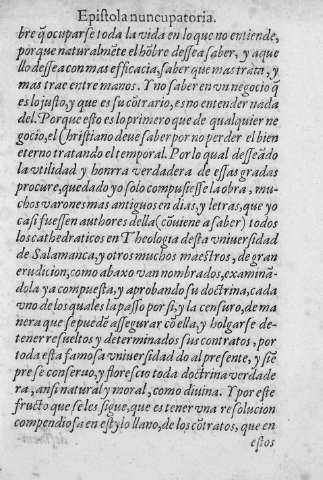 Epistola nuncupatoria.
bre q̃ ocuparse toda la vida en lo que no entiende,
porque naturalmẽte el hõbre dessea saber, y aque
llo dessea con mas efficacia, saber que mas trata, y
mas trae entre manos. Y no saber en vn negocio q̃
es lo justo, y que es su cõtrario, es no entender nada
del. Porque esto es lo primero que de qualquier ne
gocio, el Christiano deue saber por no perder el bien
eterno tratando el temporal. Por lo qual desseãdo
la vtilidad y honrra verdadera de essas gradas
procure, quedado yo solo compusiesse la obra, mu-
chos varones mas antiguos en dias, y letras, que yo
casi fuessen authores della (cõuiene a saber) todos
los cathedraticos en Theologia desta vniuersidad
de Salamanca, y otros muchos maestros, de gran
erudicion, como abaxo van nombrados, examinã-
dola ya compuesta, y aprobando su doctrina, cada
vno de los quales la passo por si, y la censuro, de ma
nera que se puedẽ assegurar cõ ella, y holgarse de-
tener resueltos y determinados sus contratos, por
toda esta famosa vniuersidad do al presente, y siẽ
pre se conseruo, y florescio toda doctrina verdade
ra, ansi natural y moral, como diuina. Y por este
fructo que se les sigue, que es tener vna resolucion
compendiosa en estylo llano, de los cõtratos, que en
estos